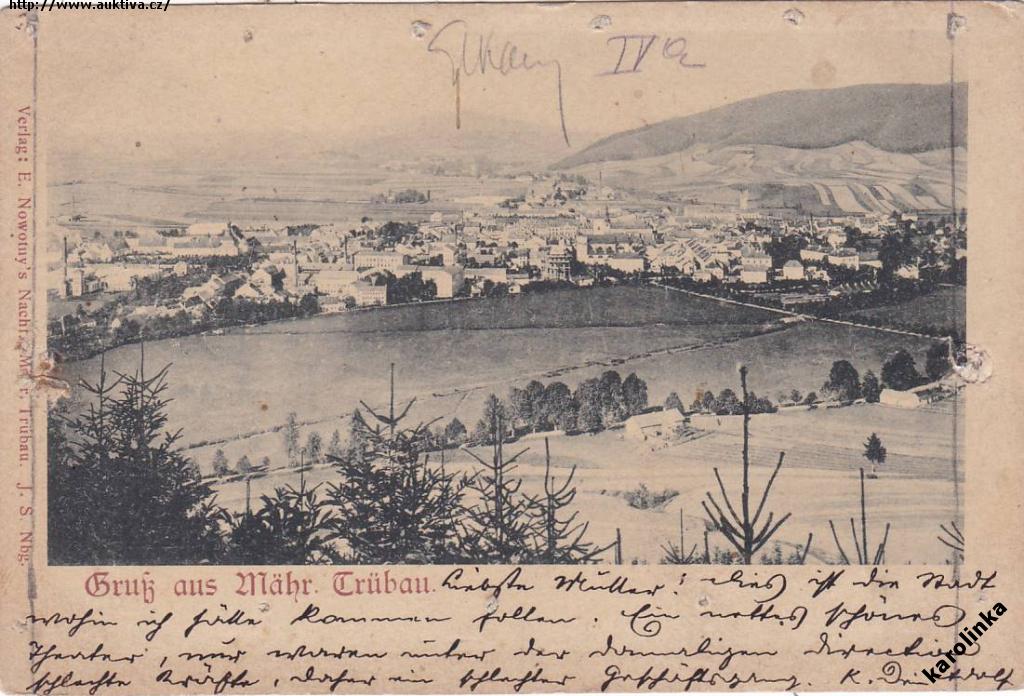 http://www.auktiva.cz/
IVa
Verlag: E. Nowotny's Nachf., M. Trübau. J. S. Nbg.
Gruß aus Mähr. Trübau. Liebste Mutter! Dies ist die Stadt
wohin ich hätte kommen sollen. Ein nettes schönes
Theater, nur waren unter der damaligen Direction
schlechte Kräfte, daher ein schlechter Geschäftsgang. K.
karolinka